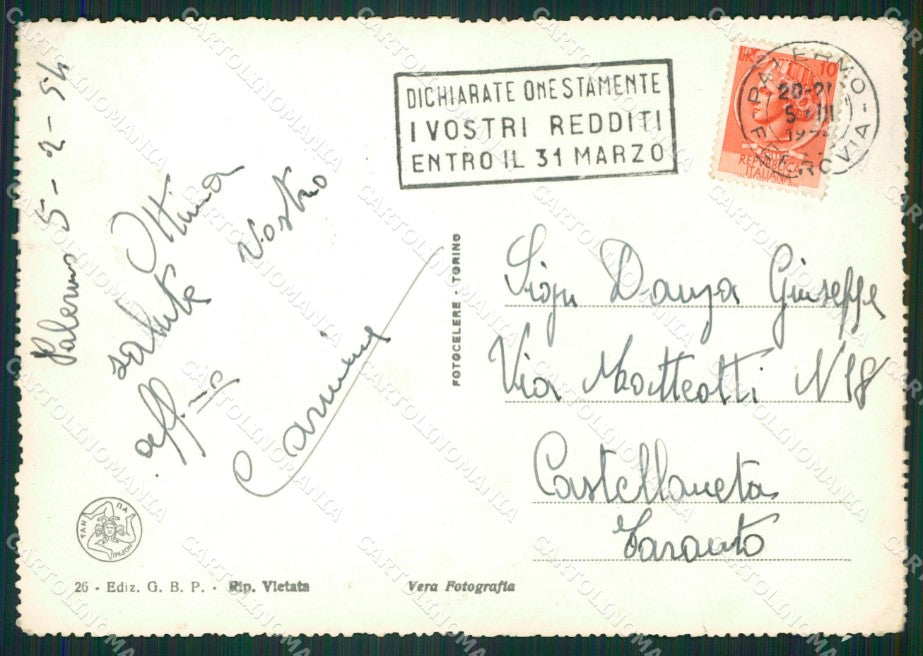 Palermo 5-2-54
Ottima
salute Vostro
aff.mo
Carmine
DICHIARATE ONESTAMENTE
I VOSTRI REDDITI
ENTRO IL 31 MARZO
10
REPUBBLICA
ITALIANA
PALERMO
20-21
FERROVIA
FOTOCELERE - TORINO
Sign Danza Giuseppe
Via Matteotti N 18
Castellaneta
Taranto
26 - Ediz. G. B. P. - Rip. Vietata
Vera Fotografia
CARTOLINOMANIA